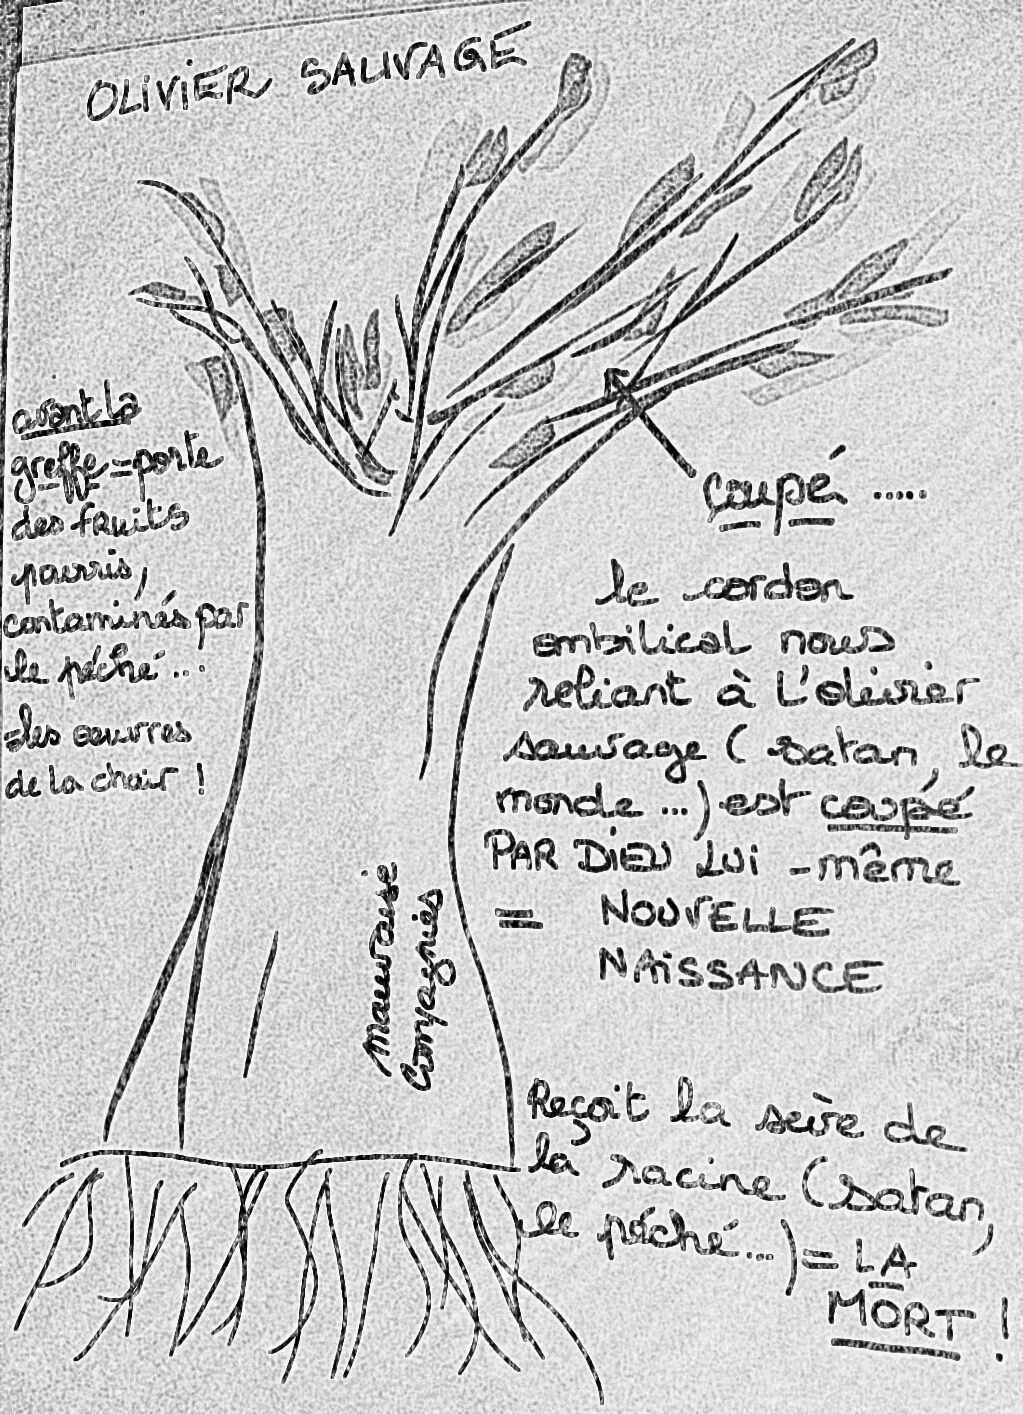 OLIVIER SAUVAGE
avant la
greffe = porte
des fruits
pourris,
contaminés par
le péché...
= les œuvres
de la chair !
coupé .....
le cordon
ombilical nous
reliant à L'olivier
sauvage (satan, le
monde ...) est coupé
PAR DIEU LUI - même
= NOUVELLE
NAISSANCE
Mauvaise
Compagnies
Reçoit la sève de
la racine (satan,
le péché...) = LA
MORT !